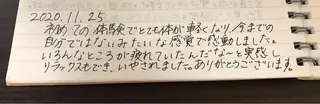 2020.11.25
初めての体験でとても体が軽くなり、今までの
自分ではないみたいな感覚で感動しました。
いろんなところが疲れていたんだな〜と実感し
リラックスもでき、いやされました。ありがとうございます。